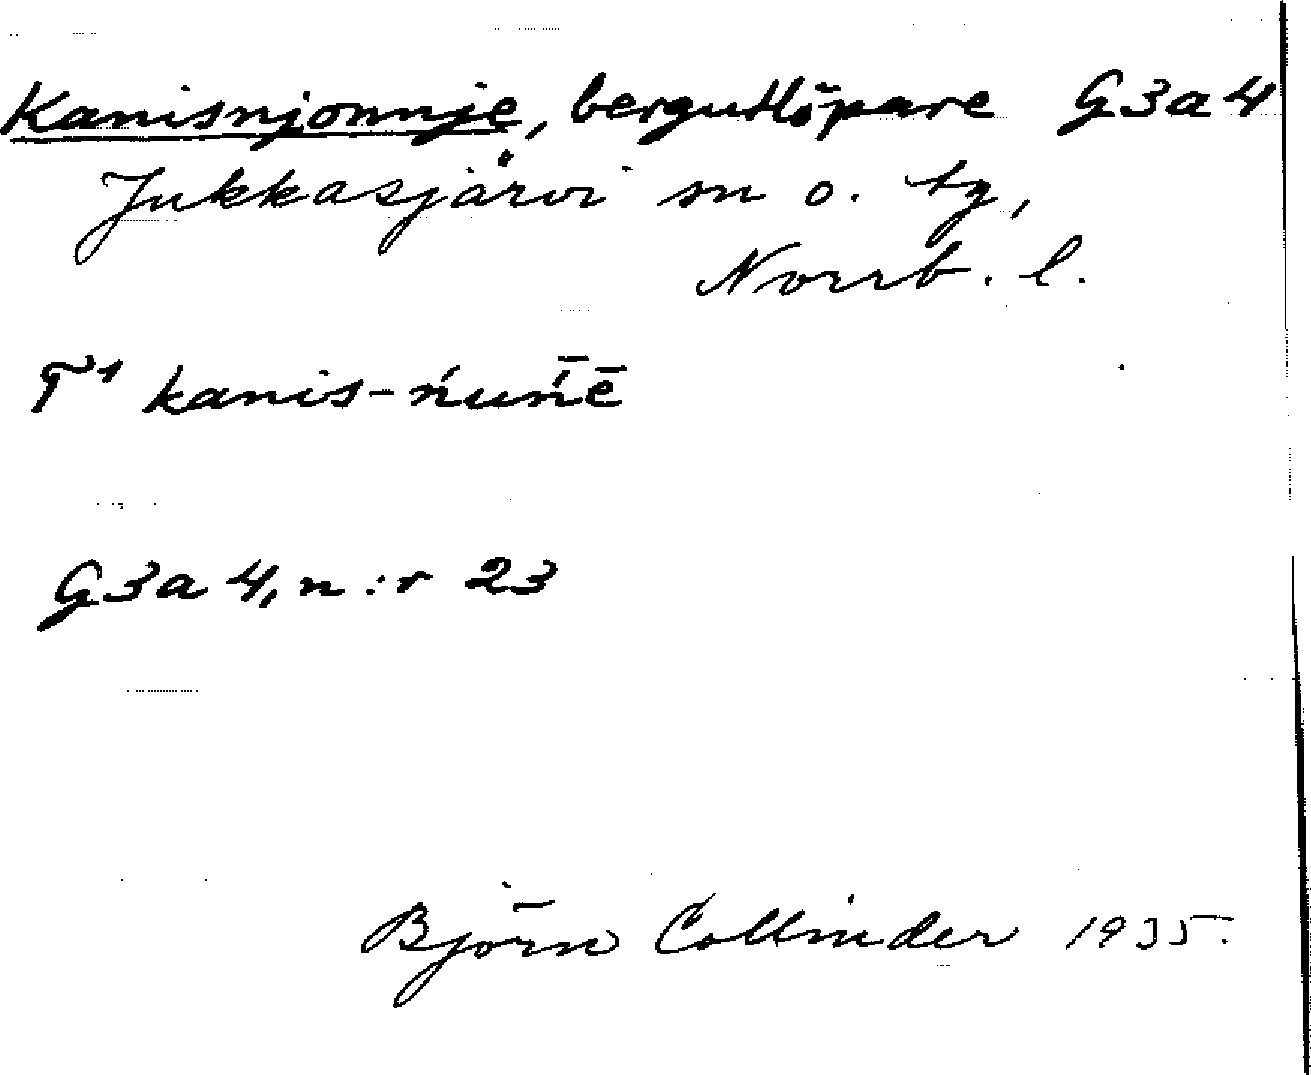 Kanisnjonnje, bergutlöpare G3a4
Jukkasjärvi sn o. tg,
Norrb. l.
T¹ kanis-ńuń̄ē
G3a4, n:r 23
Björn Collinder 1935.